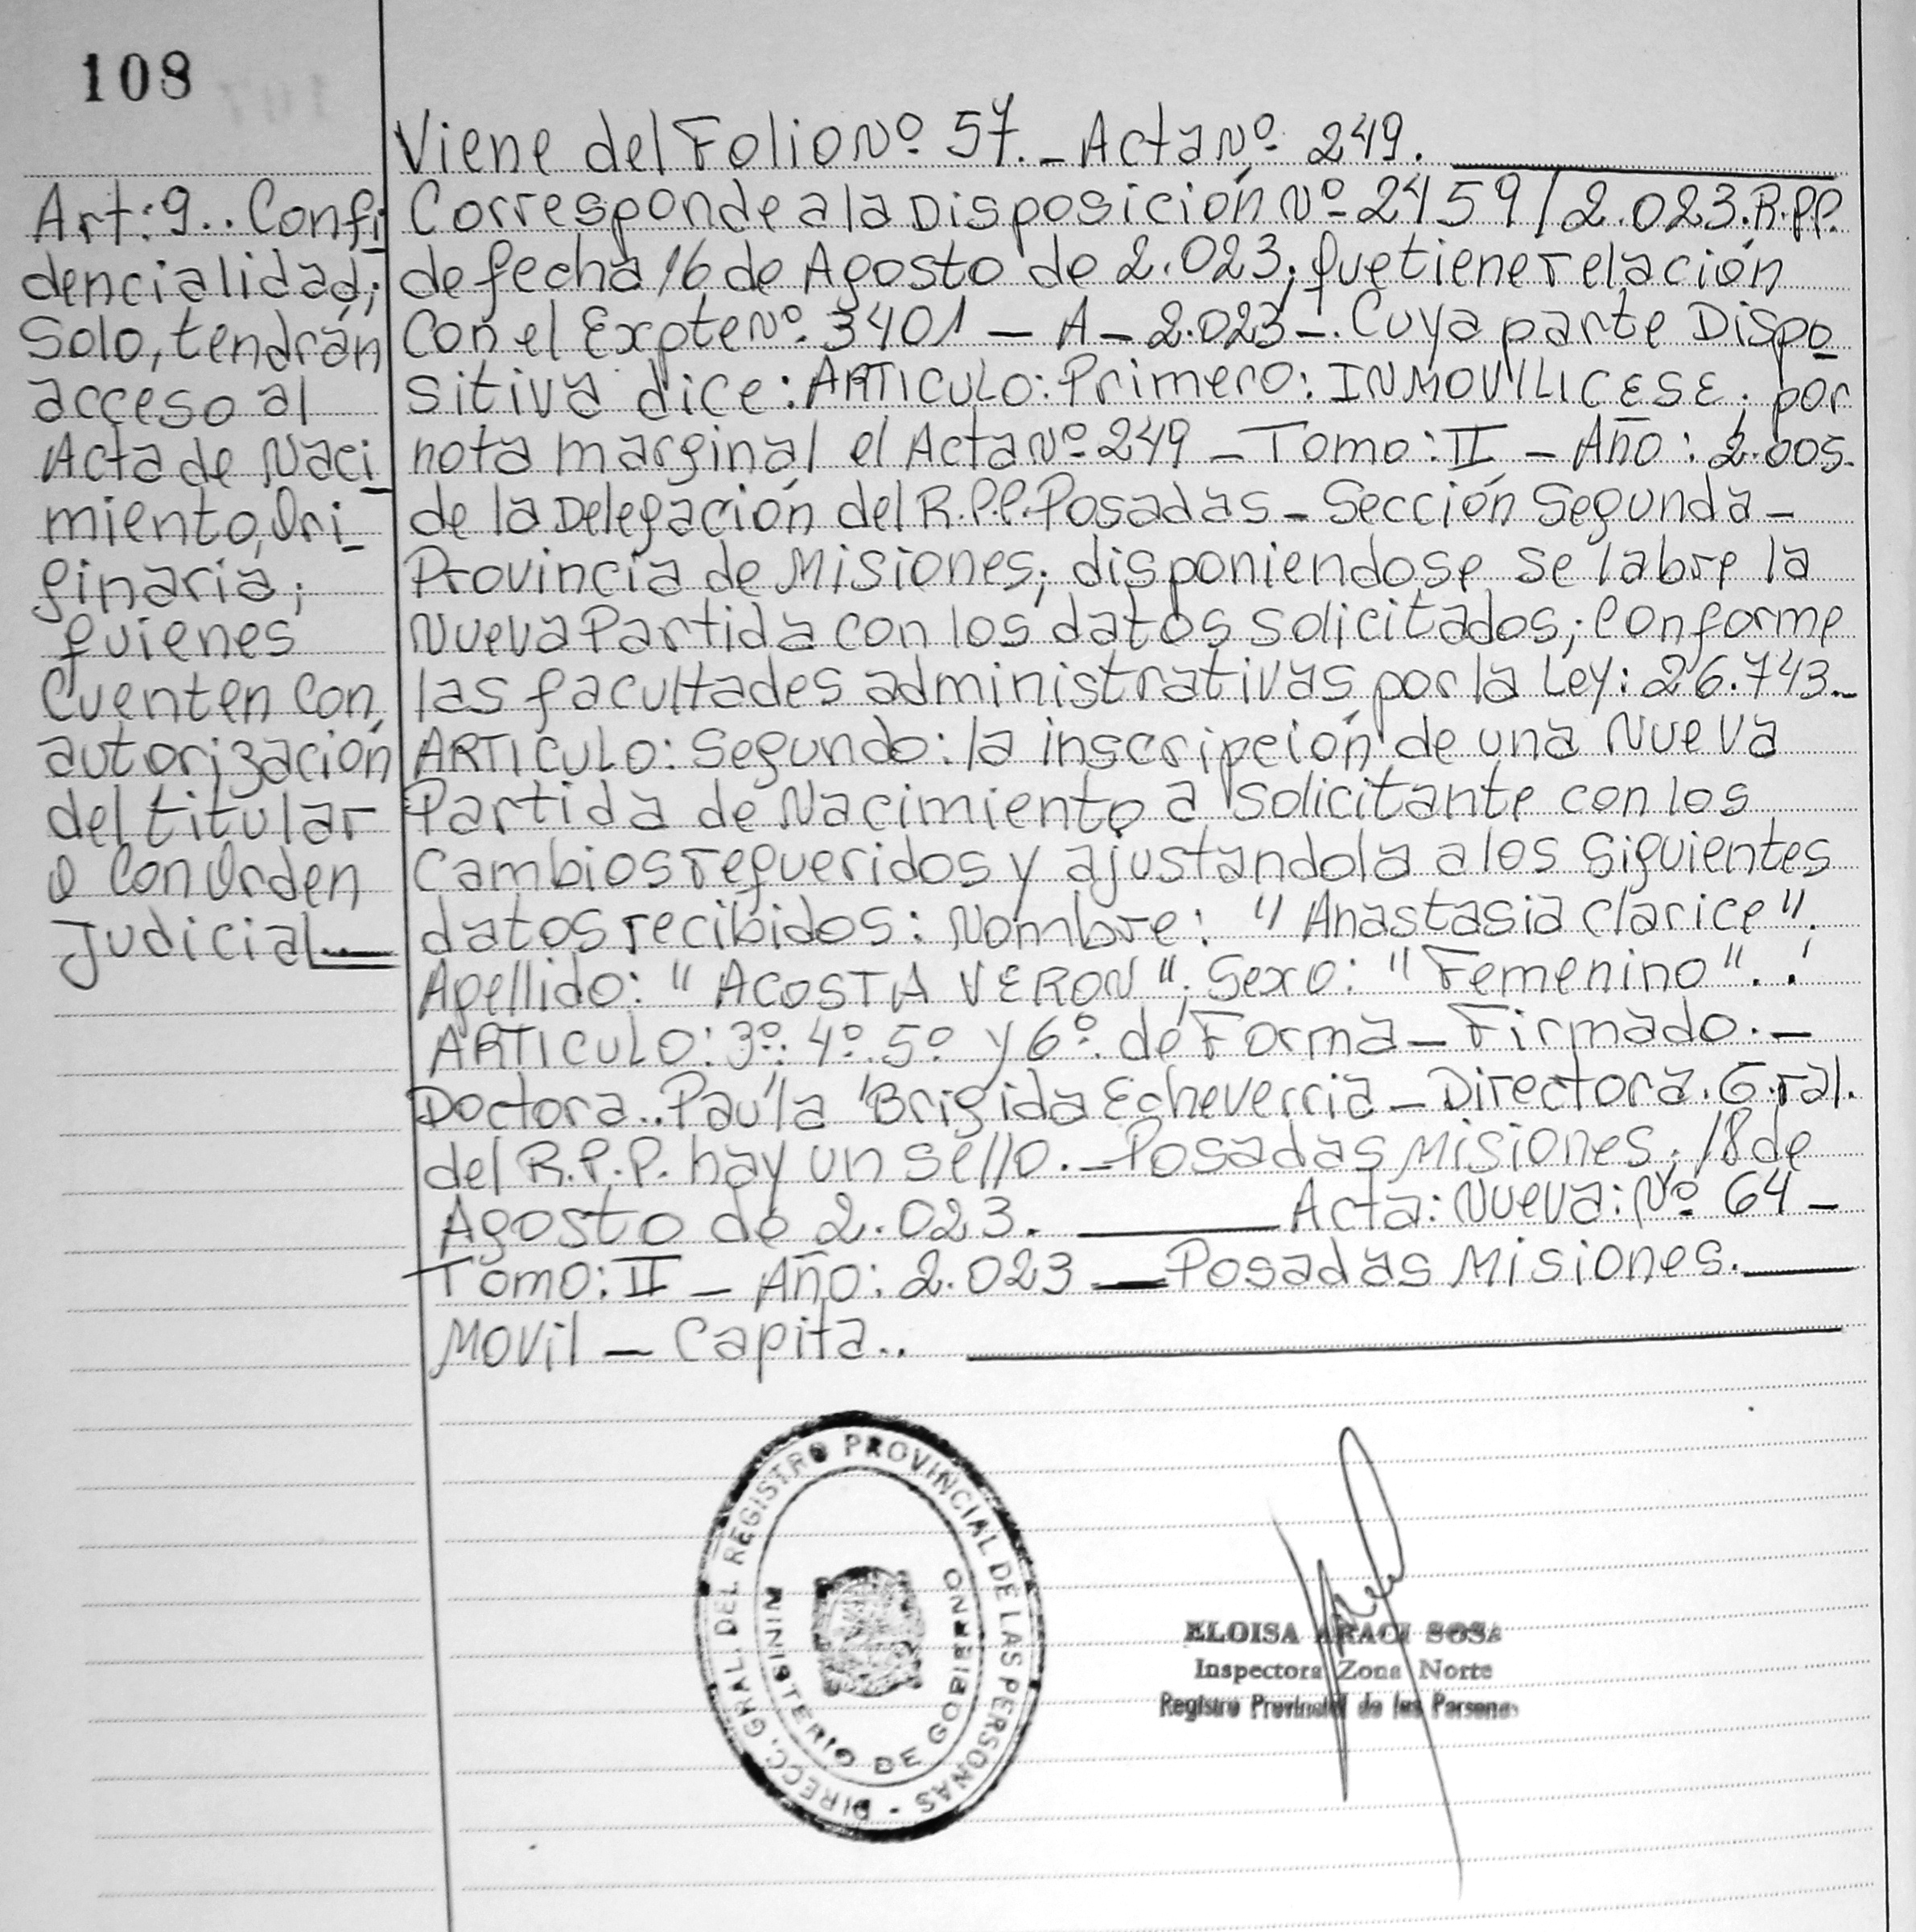 108
Art: 9.. Confi
dencialidad;
Solo, tendrán
acceso al
Acta de Naci
miento, Ori_
ginaria;
quienes
Cuenten Con,
autorización
del titular
O Con Orden
Judicial..
Viene del Folio Nº 57._ Acta Nº 249.
Corresponde a la Disposición Nº 2459/2.023.R.P.P.
de fecha 16 de Agosto de 2.023; que tiene relación
Con el Expte Nº. 3401 - A - 2.023-. Cuya parte Dispo
sitiva dice: ARTICULO: Primero: INMOVILICESE; por
nota marginal el Acta Nº 249 - Tomo: II - Año: 2.005.
de la Delegación del R.P.P. Posadas - Sección Segunda -
Provincia de Misiones; disponiendose se labre la
Nueva Partida con los datos Solicitados; Conforme
las facultades administrativas por la Ley: 26.743._
ARTICULO: Segundo: la inscripción de una Nueva
Partida de Nacimiento a Solicitante con los
Cambios requeridos y ajustandola a los Siguientes
datos recibidos: Nombre: "Anastasia Clarice".
Apellido: "ACOSTA VERON"; Sexo: "Femenino"..
ARTICULO: 3º. 4º. 5º y 6º. de Forma - Firmado.-
Doctora.. Paula Brigida Echeverria - Directora. G.ral.
del R.P.P. hay un sello._ Posadas Misiones, 18 de
Agosto de 2.023. Acta: Nueva: Nº 64 -
Tomo: II - Año: 2.023 - Posadas Misiones.
Movil - Capita..
DIRECC. GRAL. DEL REGISTRO PROVINCIAL DE LAS PERSONAS -
MINISTERIO DE GOBIERNO
ELOISA ARACI SOSA
Inspectora Zona Norte
Registro Provincial de las Personas